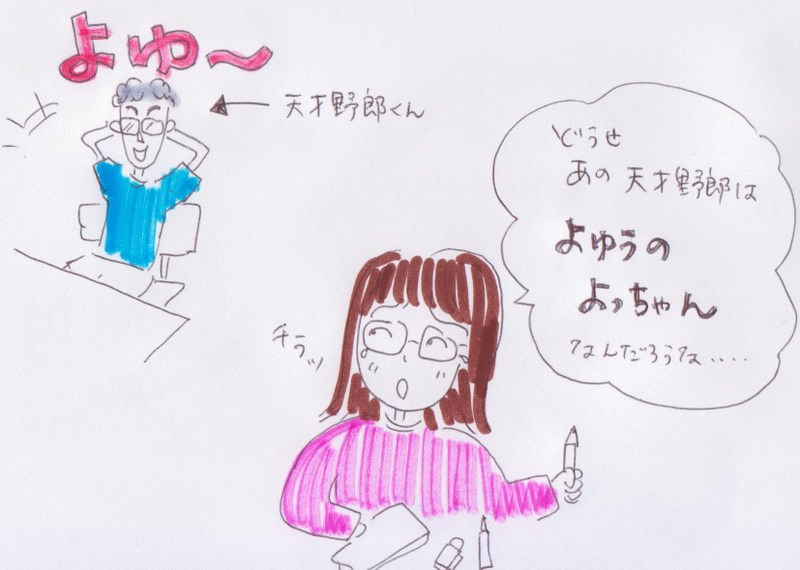 よゆ〜
天才野郎くん
どうせ
あの天才野郎は
よゆうの
よっちゃん
なんだろうな....
チラッ